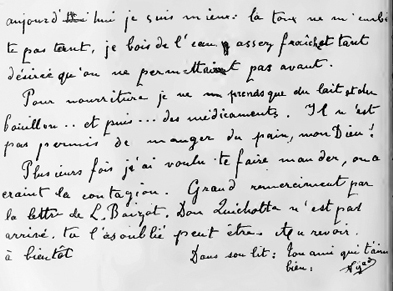 aujourd'hui je suis mieux: la toux ne m'embê
te pas tant, je bois de l'eau assez fraîche et tant
désirée qu'on ne permettait pas avant.
Pour nourriture je ne prends que du lait et du
bouillon.. et puis... des médicaments. Il n'est
pas permis de manger du pain, mon Dieu!
Plusieurs fois j'ai voulu te faire mander, on a
craint la contagion. Grand remerciment par
la lettre de L. Don Quichotte n'est pas
arrivé. tu l'as oublié peut être. Au revoir.
à bientôt Dans son lit: ton ami qui t'aime
bien,